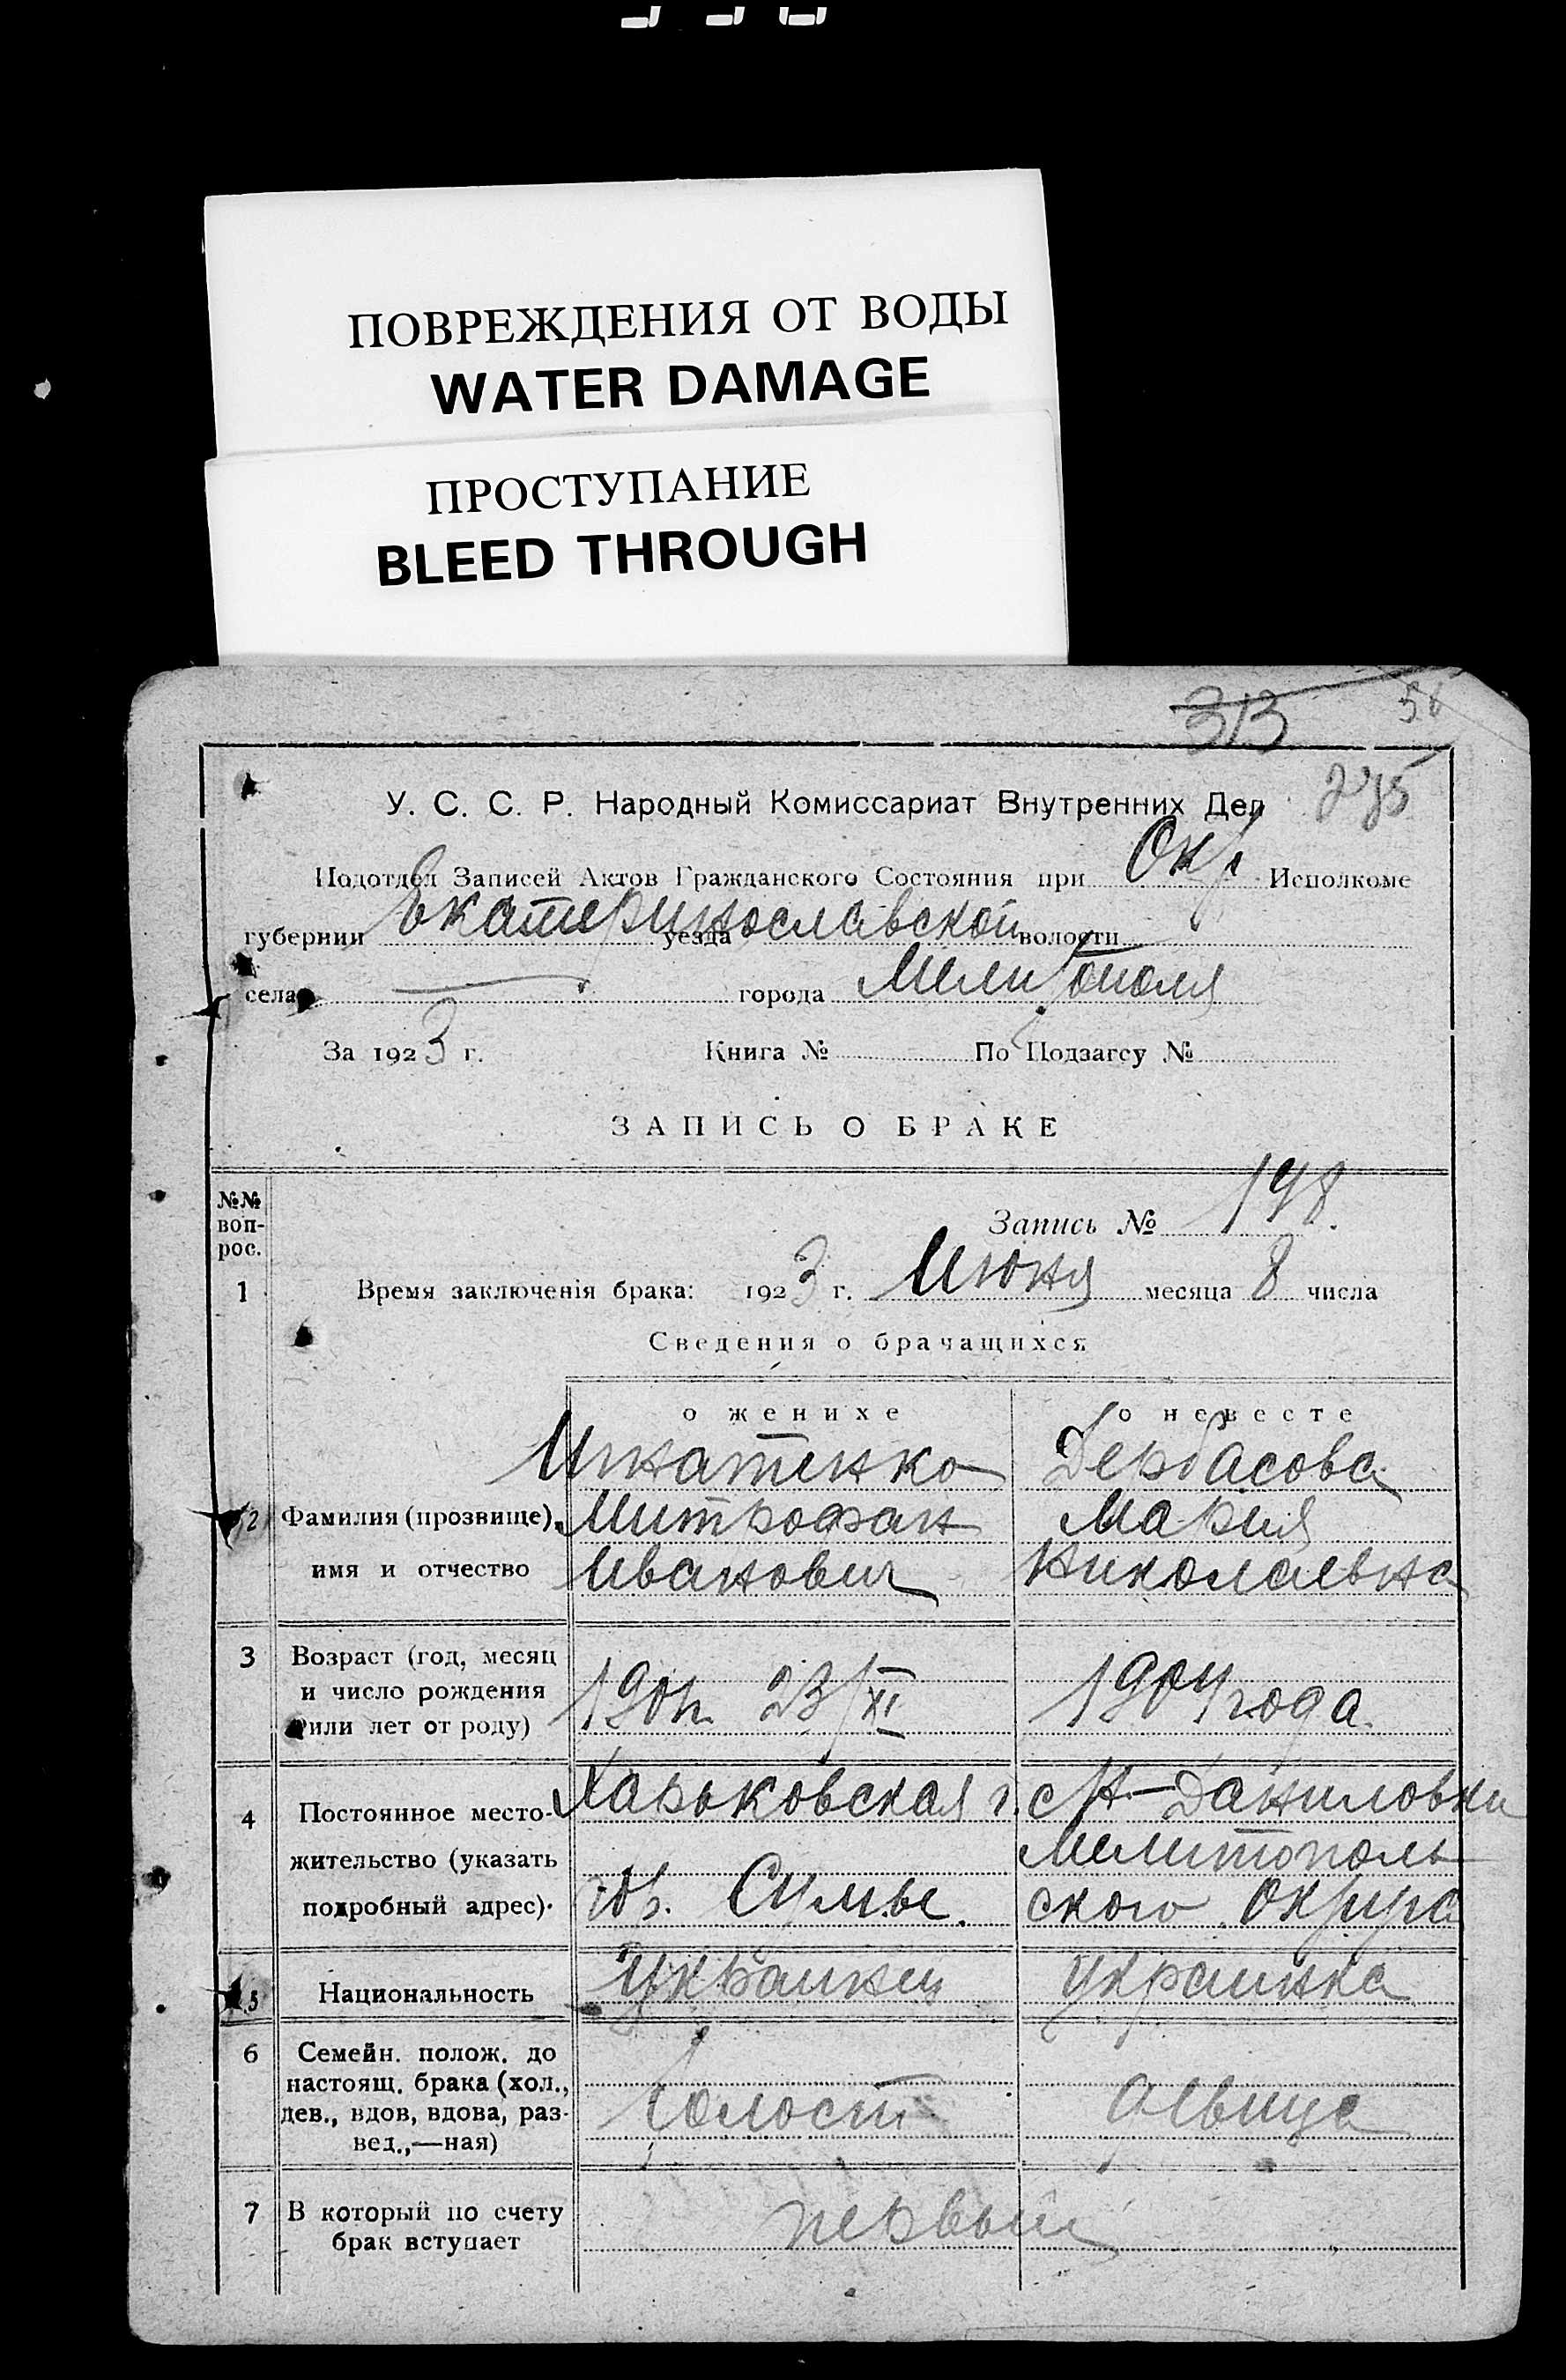 ПОВРЕЖДЕНИЯ ОТ ВОДЫ
WATER DAMAGE
ПРОСТУПАНИЕ
BLEED THROUGH
313
275
У. С. С. Р. Народный Комиссариат Внутренних Дел
Подотдел Записей Актов Гражданского Состояния при Окр. Исполкоме
губернии Екатеринославской уезда волости
села — города Мелитополя
За 1923 г. Книга № По Подзагсу №
ЗАПИСЬ О БРАКЕ
№№ воп-рос.
Запись № 198.
1 Время заключенія брака: 1923 г. Июня месяца 8 числа
Сведения о брачащихся
о женихе о невесте
Игнатенко Дербасова
2 Фамилия (прозвище), Митрофан Мария
имя и отчество Иванович Николаевна
3 Возраст (год, месяц
и число рождения 23/XI 1904 года
или лет от роду)
Харьковская г. с Н-Даниловки
4 Постоянное место-
жительство (указать Мелитополь
подробный адрес). гор. Сумы. ского округа
5 Национальность Украинец Украинка
6 Семейн. полож. до
настоящ. брака (хол., холост девица
дев., вдов, вдова, раз-
вед.,—ная)
7 В который по счету первый
брак вступает